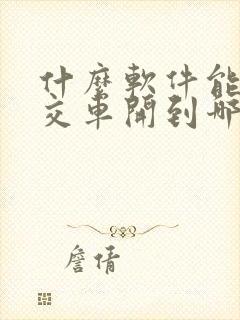 什麼軟件能
交車開到哪
詹倩